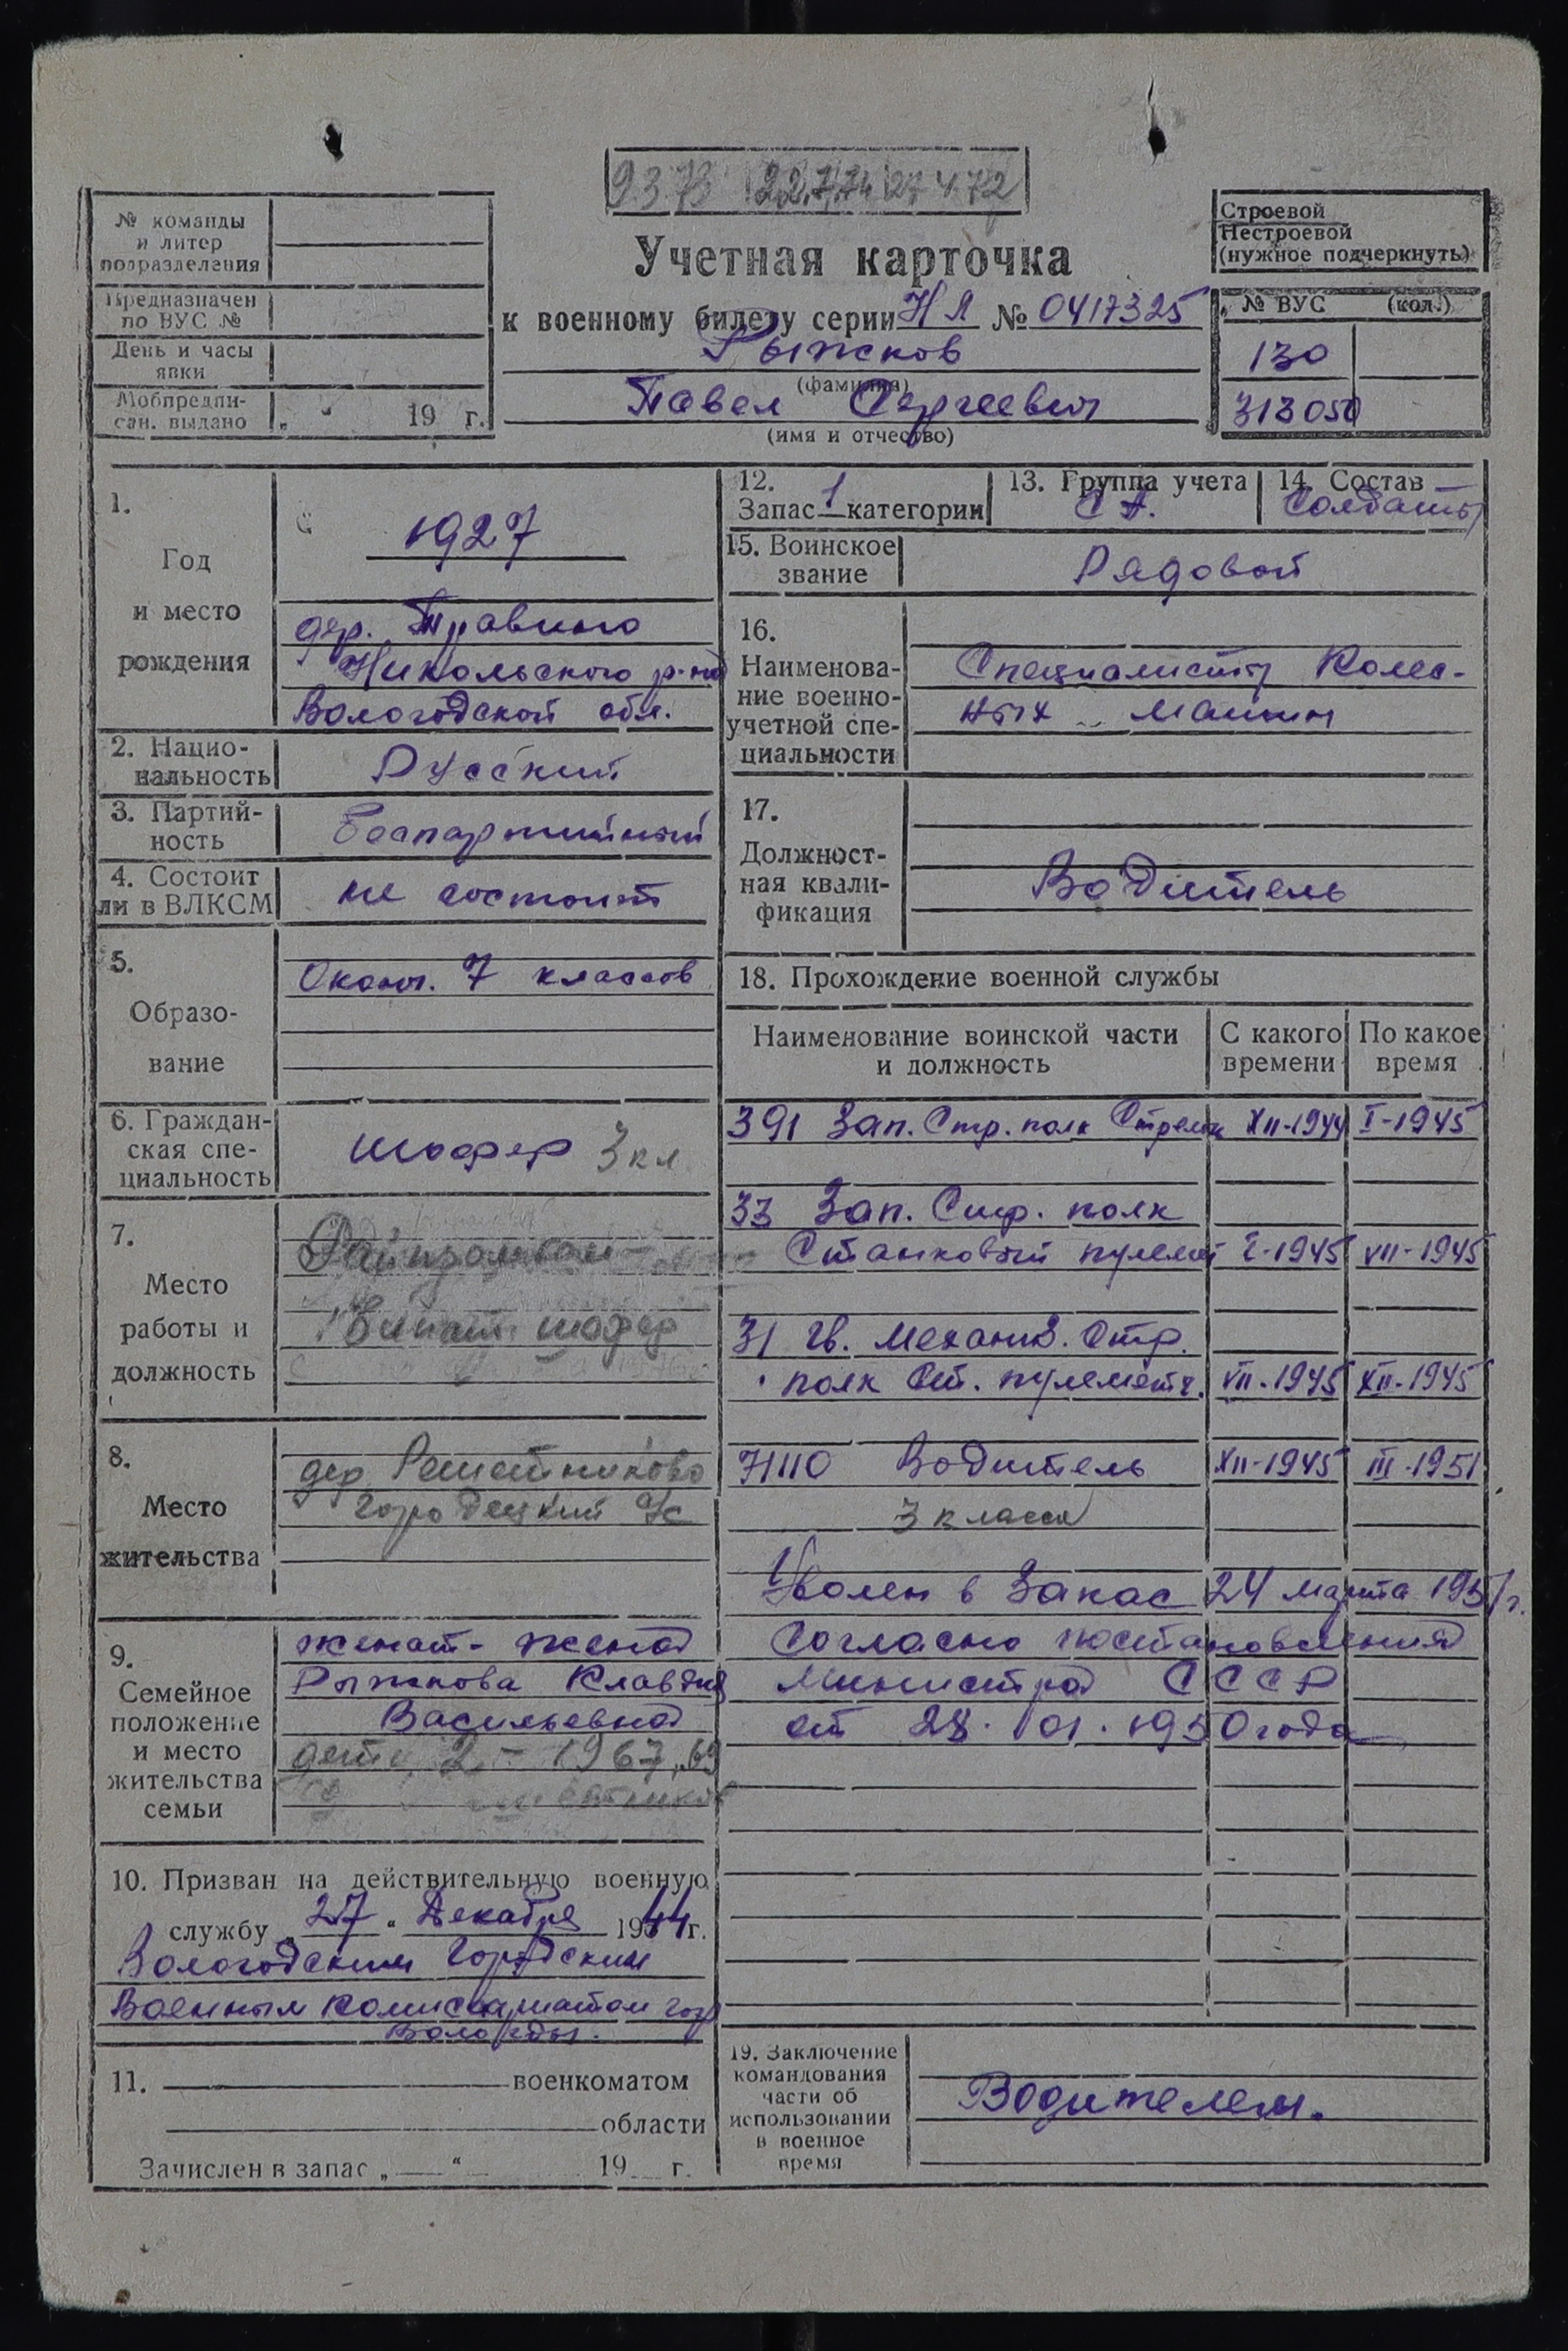 9.3.73 22.7.74 27 4 72
№ команды
и литер
подразделения
Предназначен
по ВУС №
День и часы
явки
Мобпредпи-
сан. выдано „ “ 19 г.
Учетная карточка
к военному билету серии НЯ № 0417325
Рыжков
(фамилия)
Павел Сергеевич
(имя и отчество)
Строевой
Нестроевой
(нужное подчеркнуть)
№ ВУС (кол.)
130
313050
1.
Год
и место
рождения
1927
дер. Травино
Никольского р-на
Вологодской обл.
2. Нацио-
нальность
Русский
3. Партий-
ность
Беспартийный
4. Состоит
ли в ВЛКСМ
не состоит
5.
Образо-
вание
Оконч. 7 классов
6. Граждан-
ская спе-
циальность
Шофер 3 кл
7.
Место
работы и
должность
Райпромком-
бинат шофер
8.
Место
жительства
дер. Решетниково
Городецкий с/с
9.
Семейное
положение
и место
жительства
семьи
женат - жена
Рыжкова Клавдия
Васильевна
дети 2 - 1967, 69
10. Призван на действительную военную
службу „27“ Декабря 1944 г.
Вологодским Городским
Военным комиссариатом гор
Вологды.
11. военкоматом
области
Зачислен в запас „ “ 19 г.
12.
Запас 1 категории
13. Группа учета
С А.
14. Состав
Солдаты
15. Воинское
звание
Рядовой
16.
Наименова-
ние военно-
учетной спе-
циальности
Специалисты Колес-
ных машин
17.
Должност-
ная квали-
фикация
Водитель
18. Прохождение военной службы
Наименование воинской части
и должность
С какого
времени
По какое
время
391 Зап. Стр. полк Стрелк XII-1944 I-1945
33 Зап. Стр. полк
Станковый пулемет I-1945 VII-1945
31 гв. механиз. Стр.
полк Ст. пулеметч. VII-1945 XII-1945
71110 Водитель XII-1945 III-1951
3 класса
Уволен в Запас 24 марта 1951 г.
Согласно постановления
Министров СССР
от 28. 01. 1950 года
19. Заключение
командования
части об
использовании
в военное
время
Водителем.